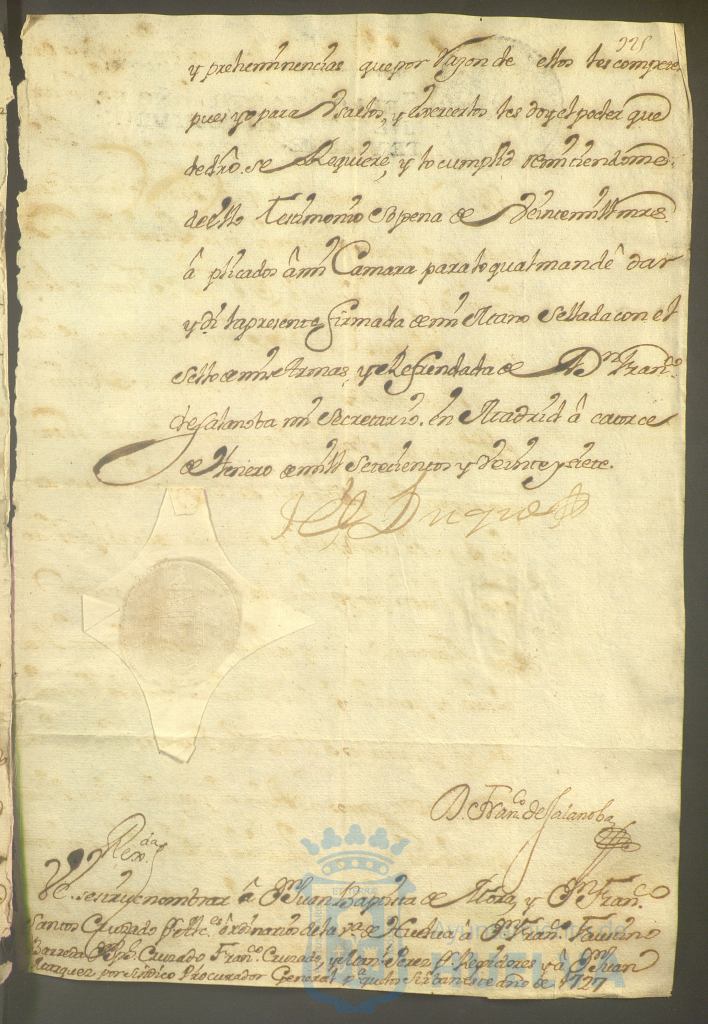 325
y prehemìnencias que por Razon de ellos les compete,
pues yo para Usarlos, y Exercerlos les doy el poder que
de dro. se Requiere, y lo cumplid remitiendome
de ello Testimonio so pena de Veinte mill mrs.
â plicados â mi Camara para lo qual mandê dar
y dì la presente firmada de mi Mano Sellada con el
Sello de mis Armas, y Refrendada de Dn. Franco.
de Salanoba mi Secretario. en Madrid â catorce
de Henero de mill Setecientos y Veinte y siete.
El Duque
D. Franco. de Salanoba
Rexda.
V.E. se sirve nombrar â Dn. Juan Baptista de Mora, y Dn. Franco.
Santos Cruzado ordinarios de la va. de Huelva â Dn. Franco. Faustino
Barreda Cruzado Franco. Cruzado, y Perez Regidores y â Dn. Juan
Marquez por Sindico Procurador General pa. que lo sirban este año de 1727
Ayuntamiento de
HUELVA